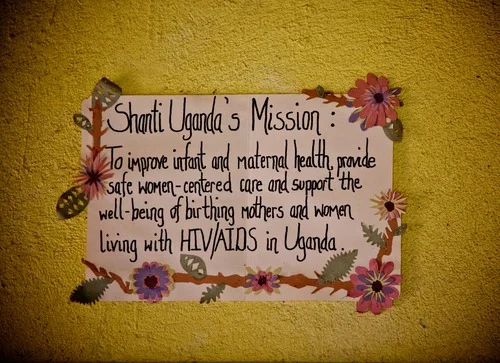 Shanti Uganda's Mission :
To improve infant and maternal health, provide
safe women-centered care and support the
well-being of birthing mothers and women
living with HIV/AIDS in Uganda.